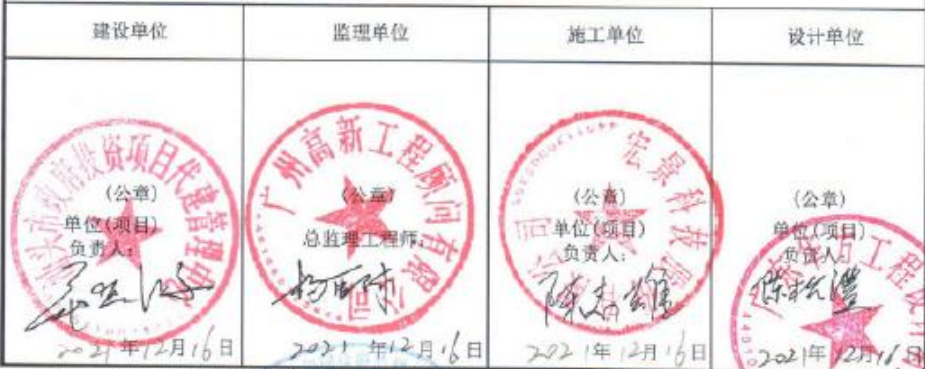 建设单位
监理单位
施工单位
设计单位
汕头市政府投资项目代建管理中心
(公章)
单位(项目)
负责人:
2021年12月16日
广州高新工程顾问有限公司
(公章)
总监理工程师:
2021年12月16日
宏景科技股
司
(公章)
单位(项目)
负责人:
陈志雄
2021年12月16日
(公章)
单位(项目)
负责人:
方工程设
陈松灃
2021年12月16日